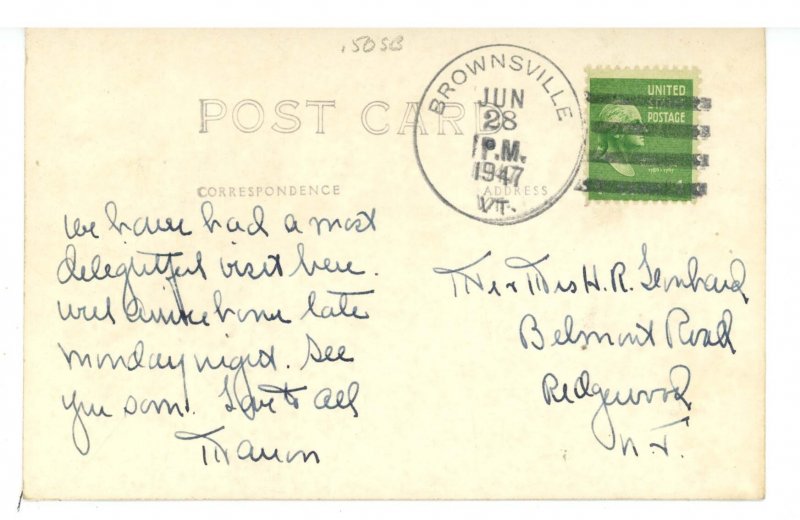 .50 SB
POST CARD
BROWNSVILLE
JUN
28
P.M.
1947
VT.
UNITED
STATES
POSTAGE
CORRESPONDENCE
ADDRESS
We have had a most
delightful visit here.
Will arrive home late
Monday night. See
you soon. Love to all
Marion
Mr + Mrs H. R.
Belmont Road
Ridgewood
N.J.